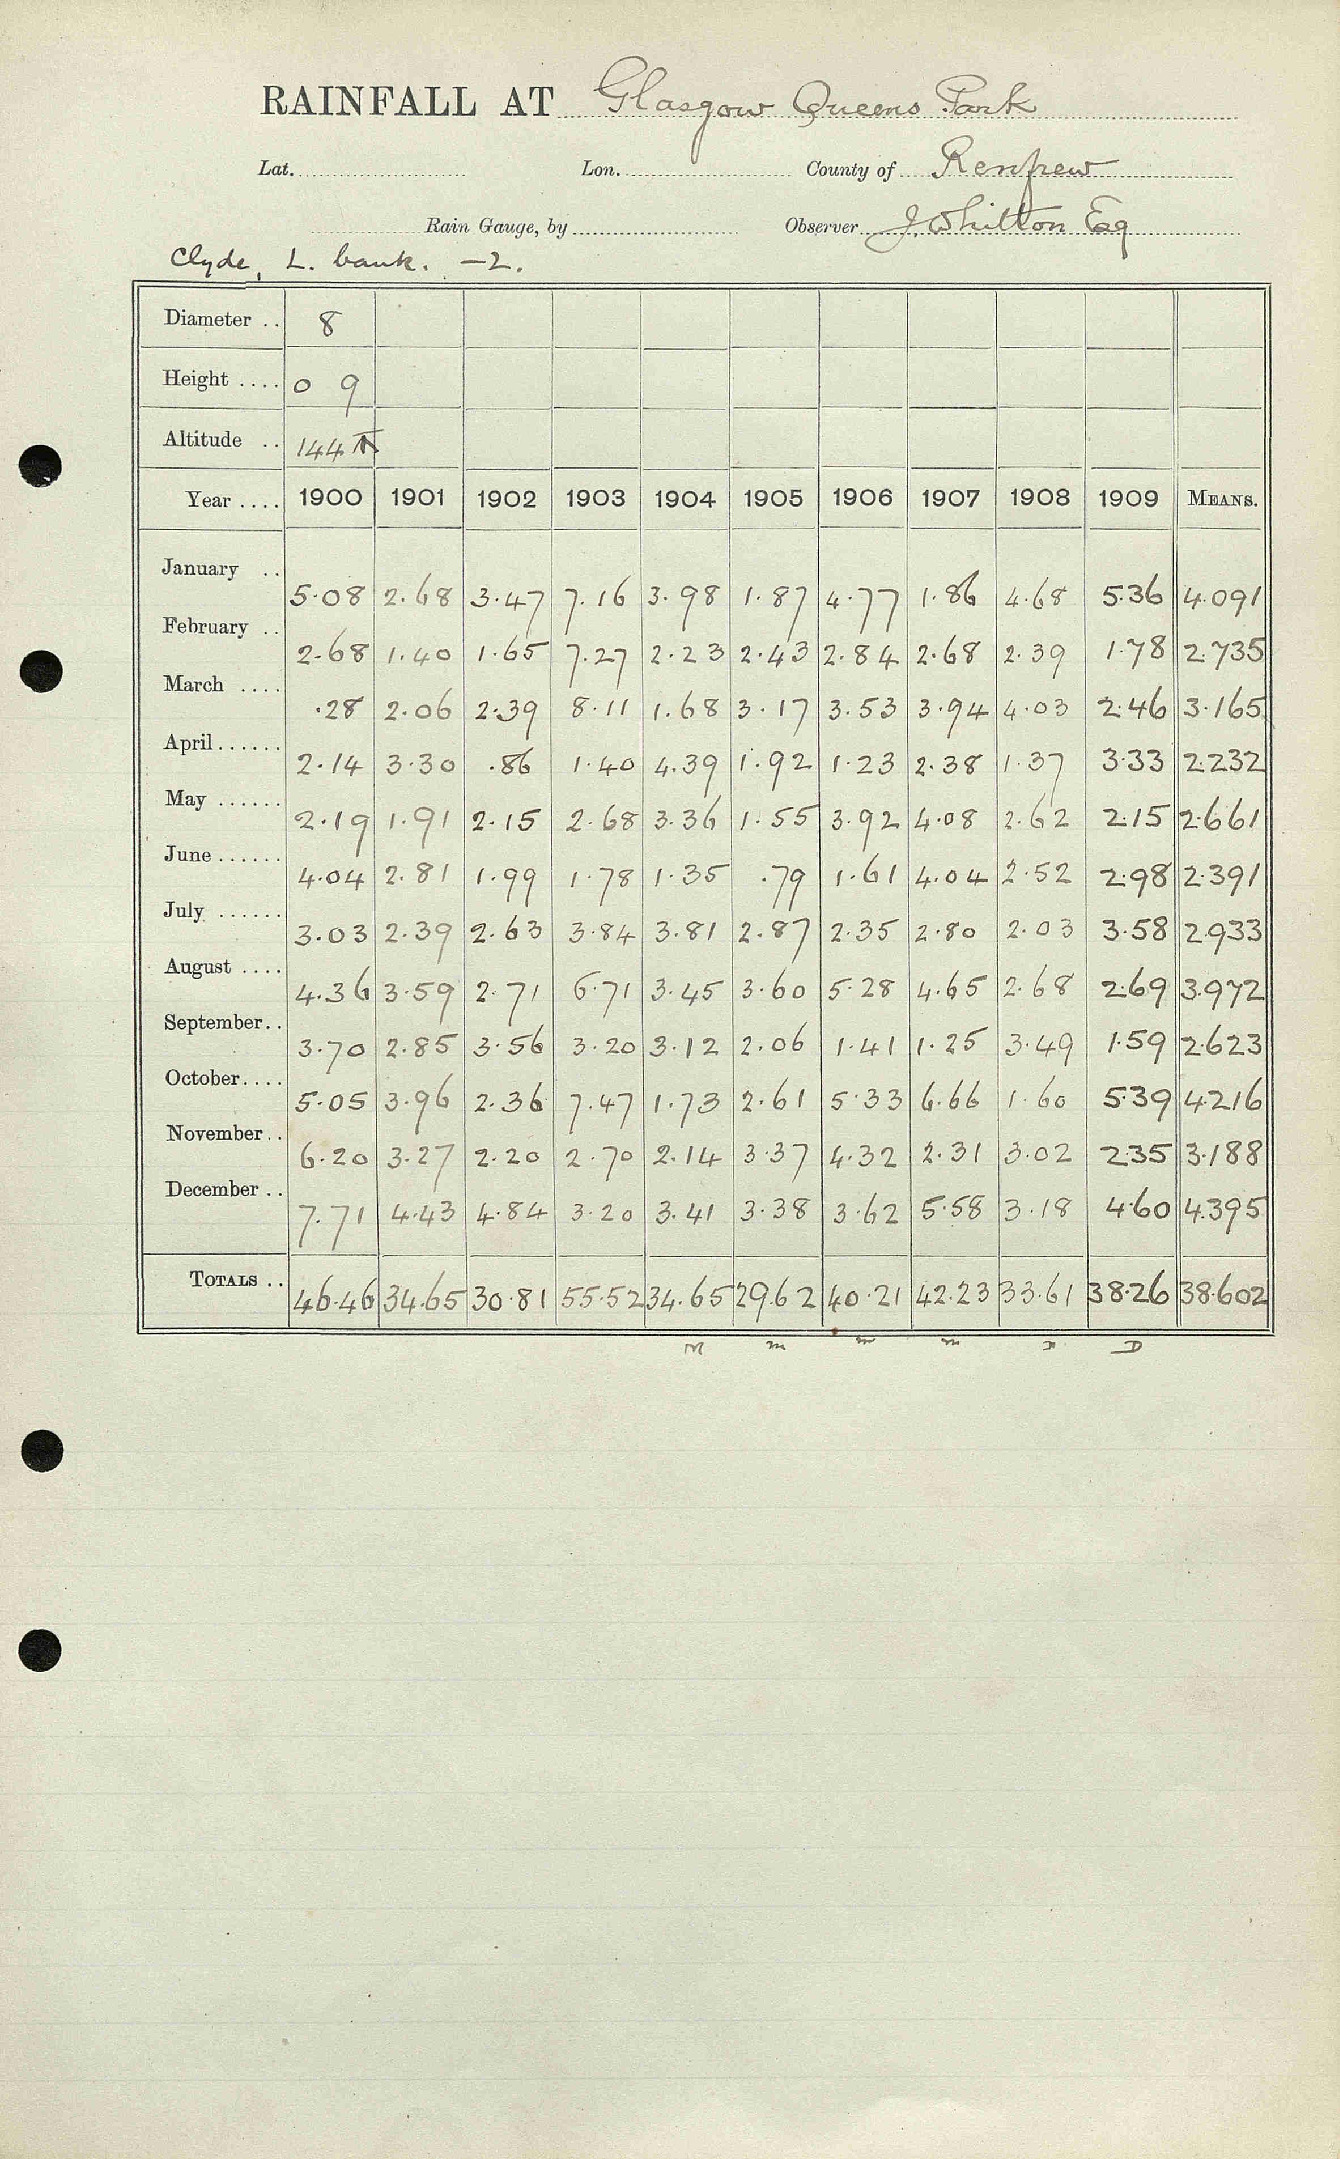 RAINFALL AT Glasgow Queens Park
Lat. Lon. County of Renfrew
Rain Gauge, by Observer J. Whitton Esq
Clyde, L. bank. -2.
Diameter .. 8
Height .... 0 9
Altitude .. 144 ft
Year .... 1900 1901 1902 1903 1904 1905 1906 1907 1908 1909 MEANS.
January .. 5.08 2.68 3.47 7.16 3.98 1.87 4.77 1.86 4.68 5.36 4.091
February .. 2.68 1.40 1.65 7.27 2.23 2.43 2.84 2.68 2.39 1.78 2.735
March .... .28 2.06 2.39 8.11 1.68 3.17 3.53 3.94 4.03 2.46 3.165
April ...... 2.14 3.30 .86 1.40 4.39 1.92 1.23 2.38 1.37 3.33 2.232
May ...... 2.19 1.91 2.15 2.68 3.36 1.55 3.92 4.08 2.62 2.15 2.661
June ...... 4.04 2.81 1.99 1.78 1.35 .79 1.61 4.04 2.52 2.98 2.391
July ...... 3.03 2.39 2.63 3.84 3.81 2.87 2.35 2.80 2.03 3.58 2.933
August .... 4.36 3.59 2.71 6.71 3.45 3.60 5.28 4.65 2.68 2.69 3.972
September .. 3.70 2.85 3.56 3.20 3.12 2.06 1.41 1.25 3.49 1.59 2.623
October .... 5.05 3.96 2.36 7.47 1.73 2.61 5.33 6.66 1.60 5.39 4.216
November .. 6.20 3.27 2.20 2.70 2.14 3.37 4.32 2.31 3.02 2.35 3.188
December .. 7.71 4.43 4.84 3.20 3.41 3.38 3.62 5.58 3.18 4.60 4.395
TOTALS .. 46.46 34.65 30.81 55.52 34.65 29.62 40.21 42.23 33.61 38.26 38.602
M m m m D